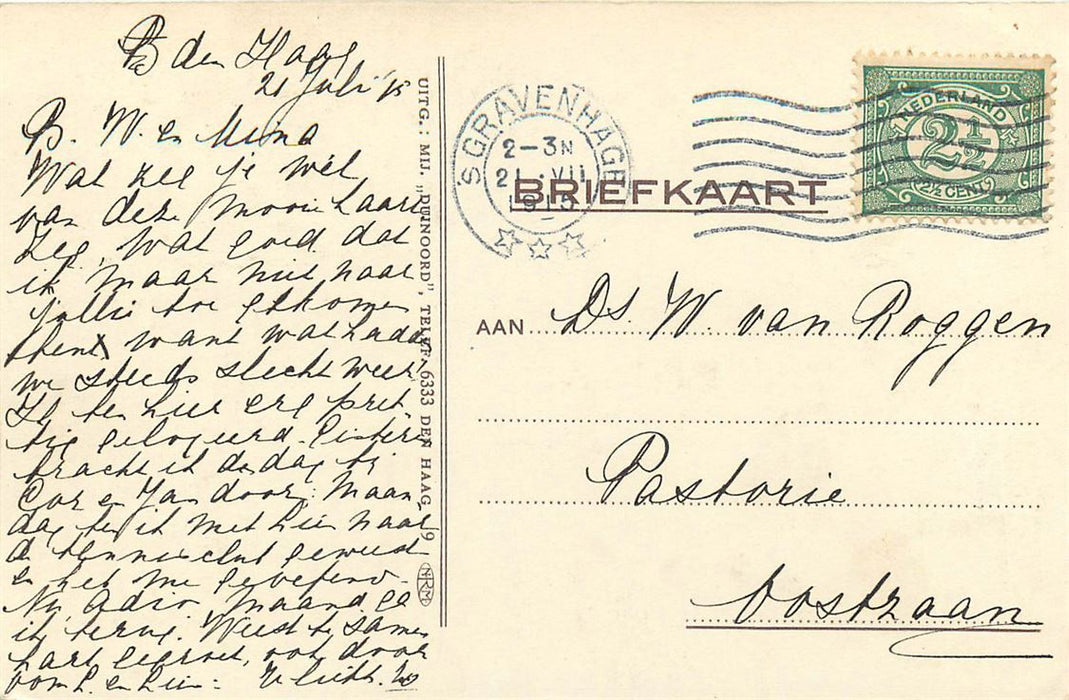 den Haag
21 Juli '15
B. W. en Mina
Wat zeg je wel
van deze mooie kaart
Zeg, wat goed dat
ik maar niet naar
jullie toe gekomen
bent want wat hadden
we steeds slecht weer
Ik ben hier erg pret
tig gelogeerd. Gisteren
bracht ik de dag bij
Cor en Jan door. Maan
dag ben ik met Lien naar
de tennisclub geweest
en heb me geoefend.
Nu, adio, Maandag ga
ik terug. Weest te samen
hart. gegroet, ook door
oom L. en Lien:
UITG.: MIJ. „DUINOORD", TELEF. 6333 DEN HAAG 19
NRM
'S GRAVENHAGE
2-3N
21.VII
1915
NEDERLAND
2½
2½ CENT
BRIEFKAART
AAN Ds. W. van Roggen
Pastorie
Oostzaan